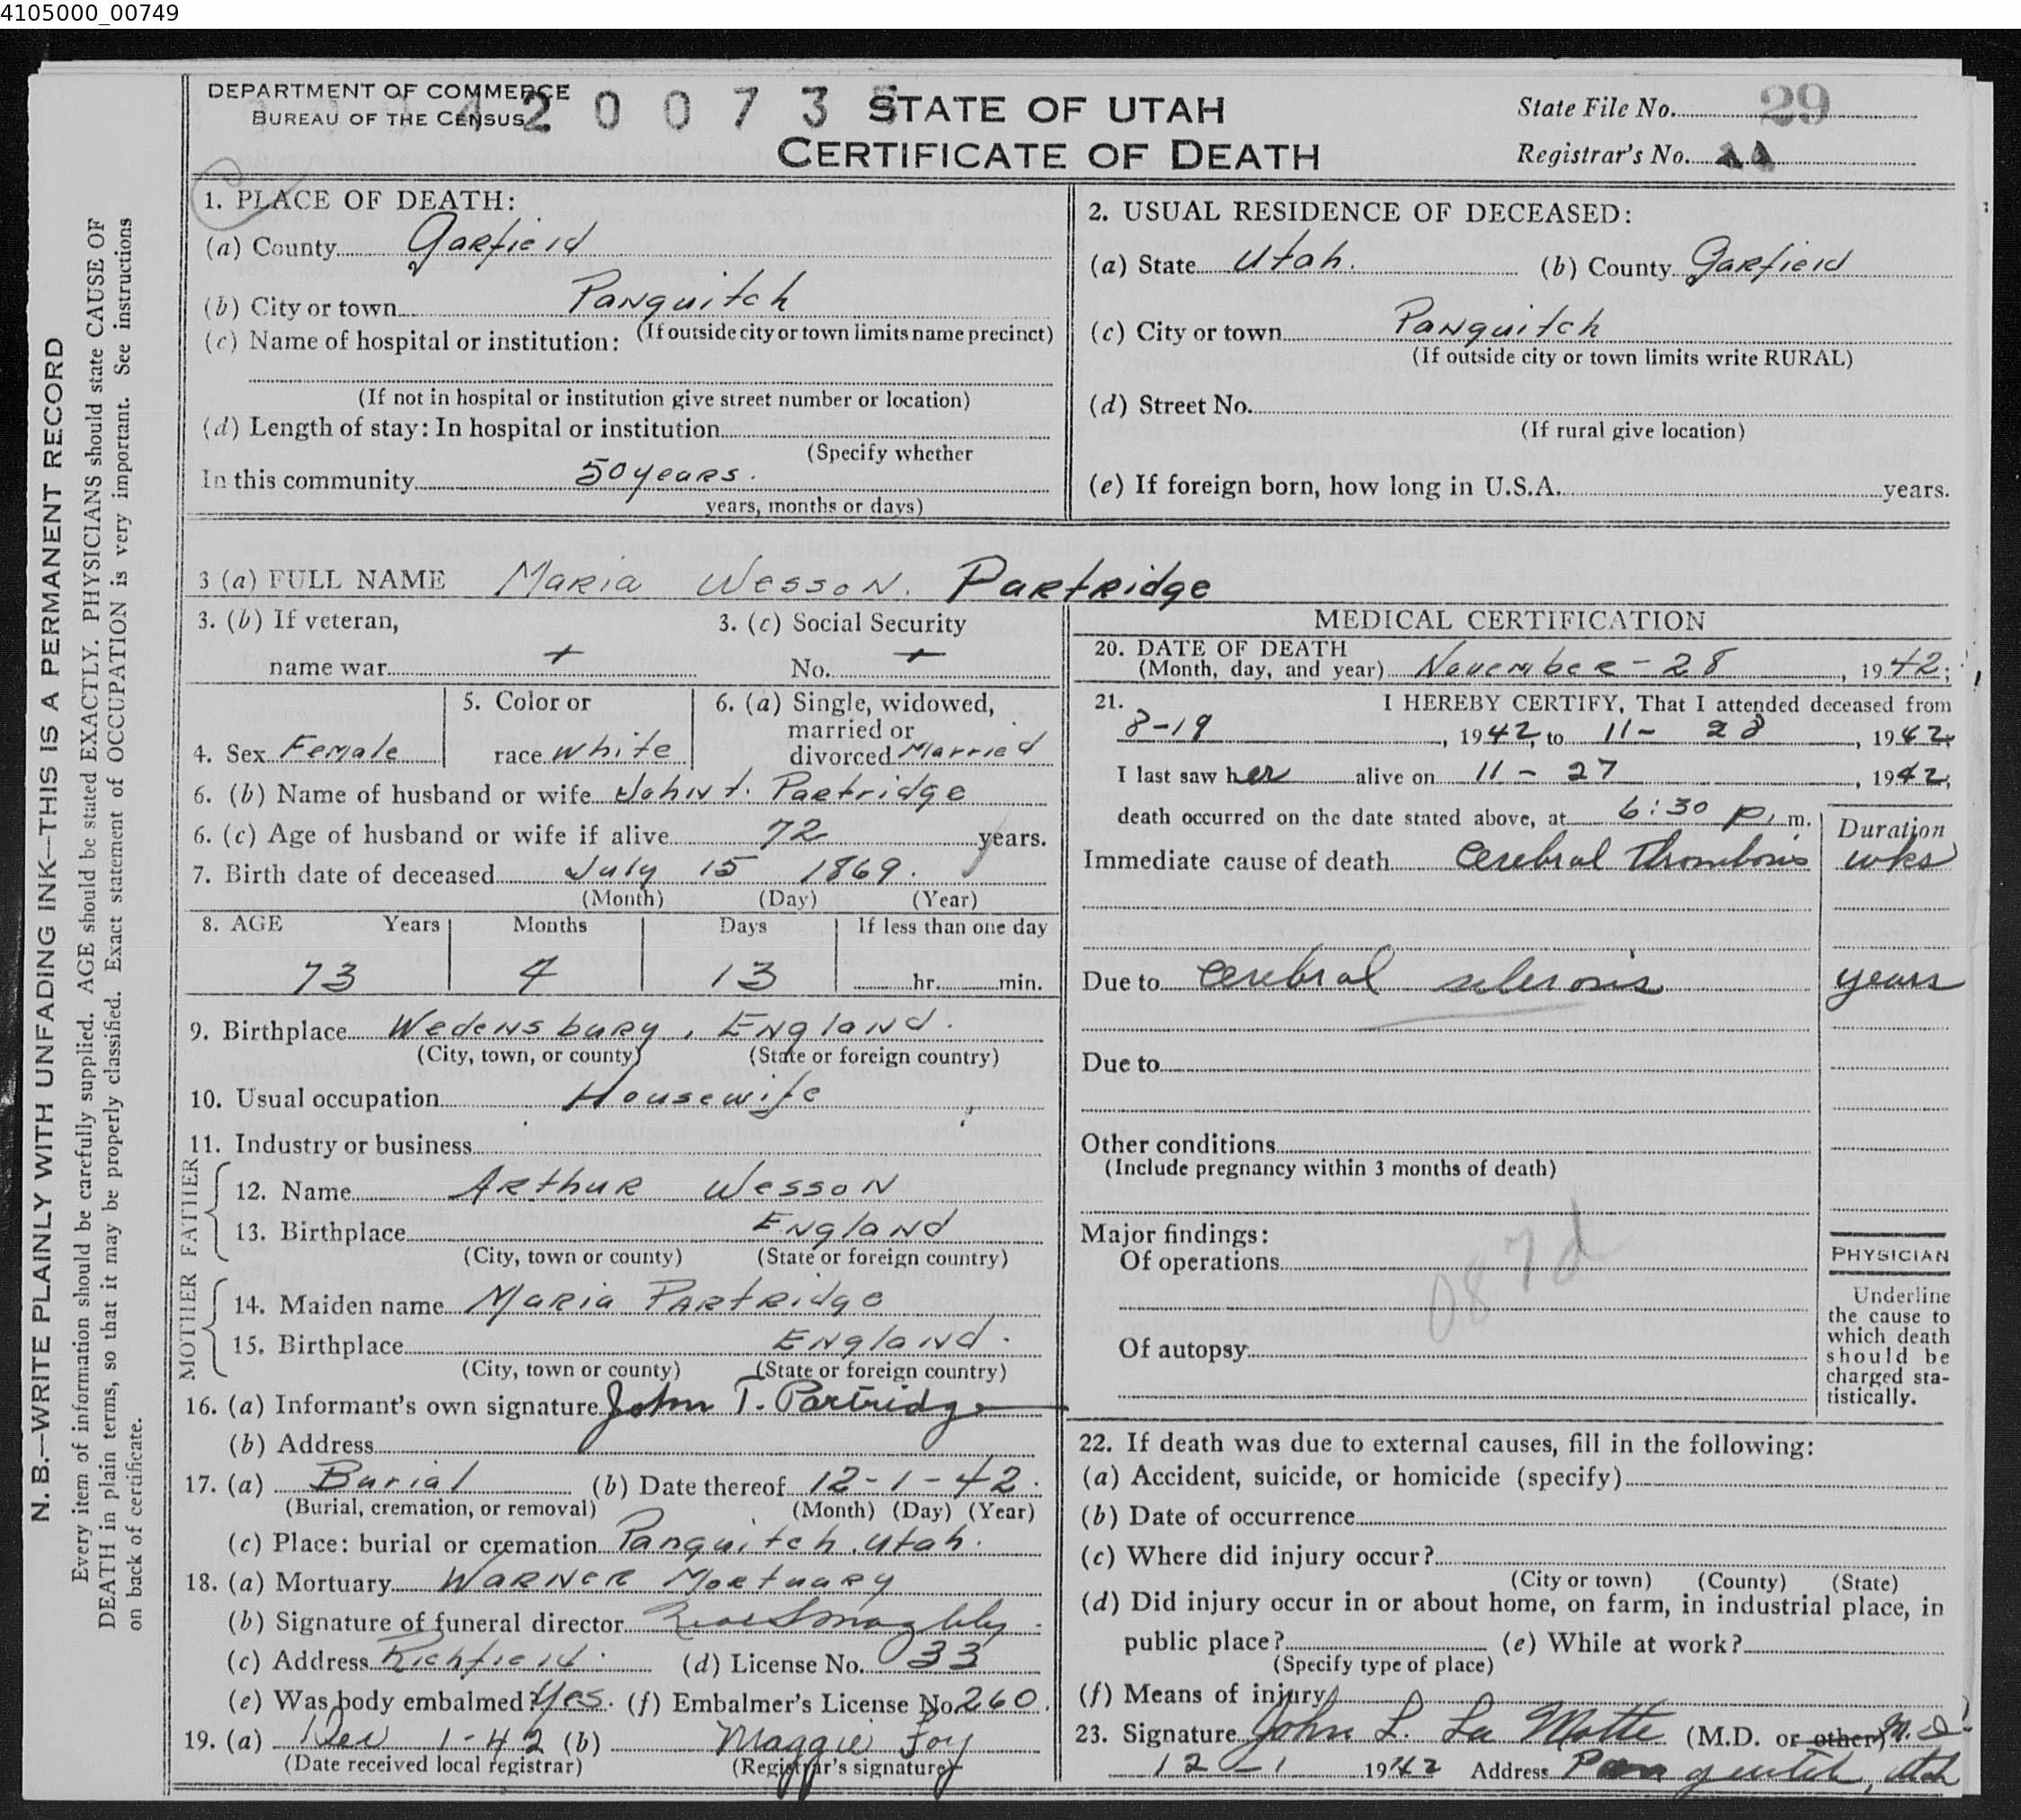 4105000_00749
DEPARTMENT OF COMMERCE
BUREAU OF THE CENSUS
2 0 0 7 3
STATE OF UTAH
CERTIFICATE OF DEATH
State File No. 29
Registrar's No.
1. PLACE OF DEATH:
(a) County Garfield
(b) City or town Panguitch
(If outside city or town limits name precinct)
(c) Name of hospital or institution:
(If not in hospital or institution give street number or location)
(d) Length of stay: In hospital or institution
(Specify whether
In this community 50 years.
years, months or days)
2. USUAL RESIDENCE OF DECEASED:
(a) State Utah. (b) County Garfield
(c) City or town Panguitch
(If outside city or town limits write RURAL)
(d) Street No.
(If rural give location)
(e) If foreign born, how long in U.S.A. years.
3 (a) FULL NAME Maria Wesson. Partridge
3. (b) If veteran,
name war +
3. (c) Social Security
No. +
4. Sex Female
5. Color or
race white
6. (a) Single, widowed,
married or
divorced Married
6. (b) Name of husband or wife John t. Partridge
6. (c) Age of husband or wife if alive 72 years.
7. Birth date of deceased July 15 1869.
(Month) (Day) (Year)
8. AGE Years Months Days If less than one day
73 4 13 hr. min.
9. Birthplace Wedensbury, England.
(City, town, or county) (State or foreign country)
10. Usual occupation Housewife
11. Industry or business
FATHER
12. Name Arthur Wesson
13. Birthplace England
(City, town or county) (State or foreign country)
MOTHER
14. Maiden name Maria Partridge
15. Birthplace England.
(City, town or county) (State or foreign country)
16. (a) Informant's own signature John T. Partridge
(b) Address
17. (a) Burial (b) Date thereof 12-1-42.
(Burial, cremation, or removal) (Month) (Day) (Year)
(c) Place: burial or cremation Panguitch, Utah.
18. (a) Mortuary Warner Mortuary
(b) Signature of funeral director
(c) Address Richfield. (d) License No. 33
(e) Was body embalmed? Yes. (f) Embalmer's License No. 260.
19. (a) Dec 1-42 (b) Maggie Foy
(Date received local registrar) (Registrar's signature)
MEDICAL CERTIFICATION
20. DATE OF DEATH
(Month, day, and year) November-28, 1942;
21. I HEREBY CERTIFY, That I attended deceased from
8-19, 1942, to 11-28, 1942,
I last saw her alive on 11-27, 1942,
death occurred on the date stated above, at 6:30 p. m.
Duration
Immediate cause of death Cerebral Thrombosis wks
Due to Cerebral sclerosis years
Due to
Other conditions
(Include pregnancy within 3 months of death)
Major findings:
Of operations
087d
Of autopsy
PHYSICIAN
Underline
the cause to
which death
should be
charged sta-
tistically.
22. If death was due to external causes, fill in the following:
(a) Accident, suicide, or homicide (specify)
(b) Date of occurrence
(c) Where did injury occur?
(City or town) (County) (State)
(d) Did injury occur in or about home, on farm, in industrial place, in
public place? (e) While at work?
(Specify type of place)
(f) Means of injury
23. Signature John L. La Motte (M.D. or other) M.D.
12-1 1942 Address Panguitch, Utah
N. B.—WRITE PLAINLY WITH UNFADING INK—THIS IS A PERMANENT RECORD
Every item of information should be carefully supplied. AGE should be stated EXACTLY. PHYSICIANS should state CAUSE OF
DEATH in plain terms, so that it may be properly classified. Exact statement of OCCUPATION is very important. See instructions
on back of certificate.